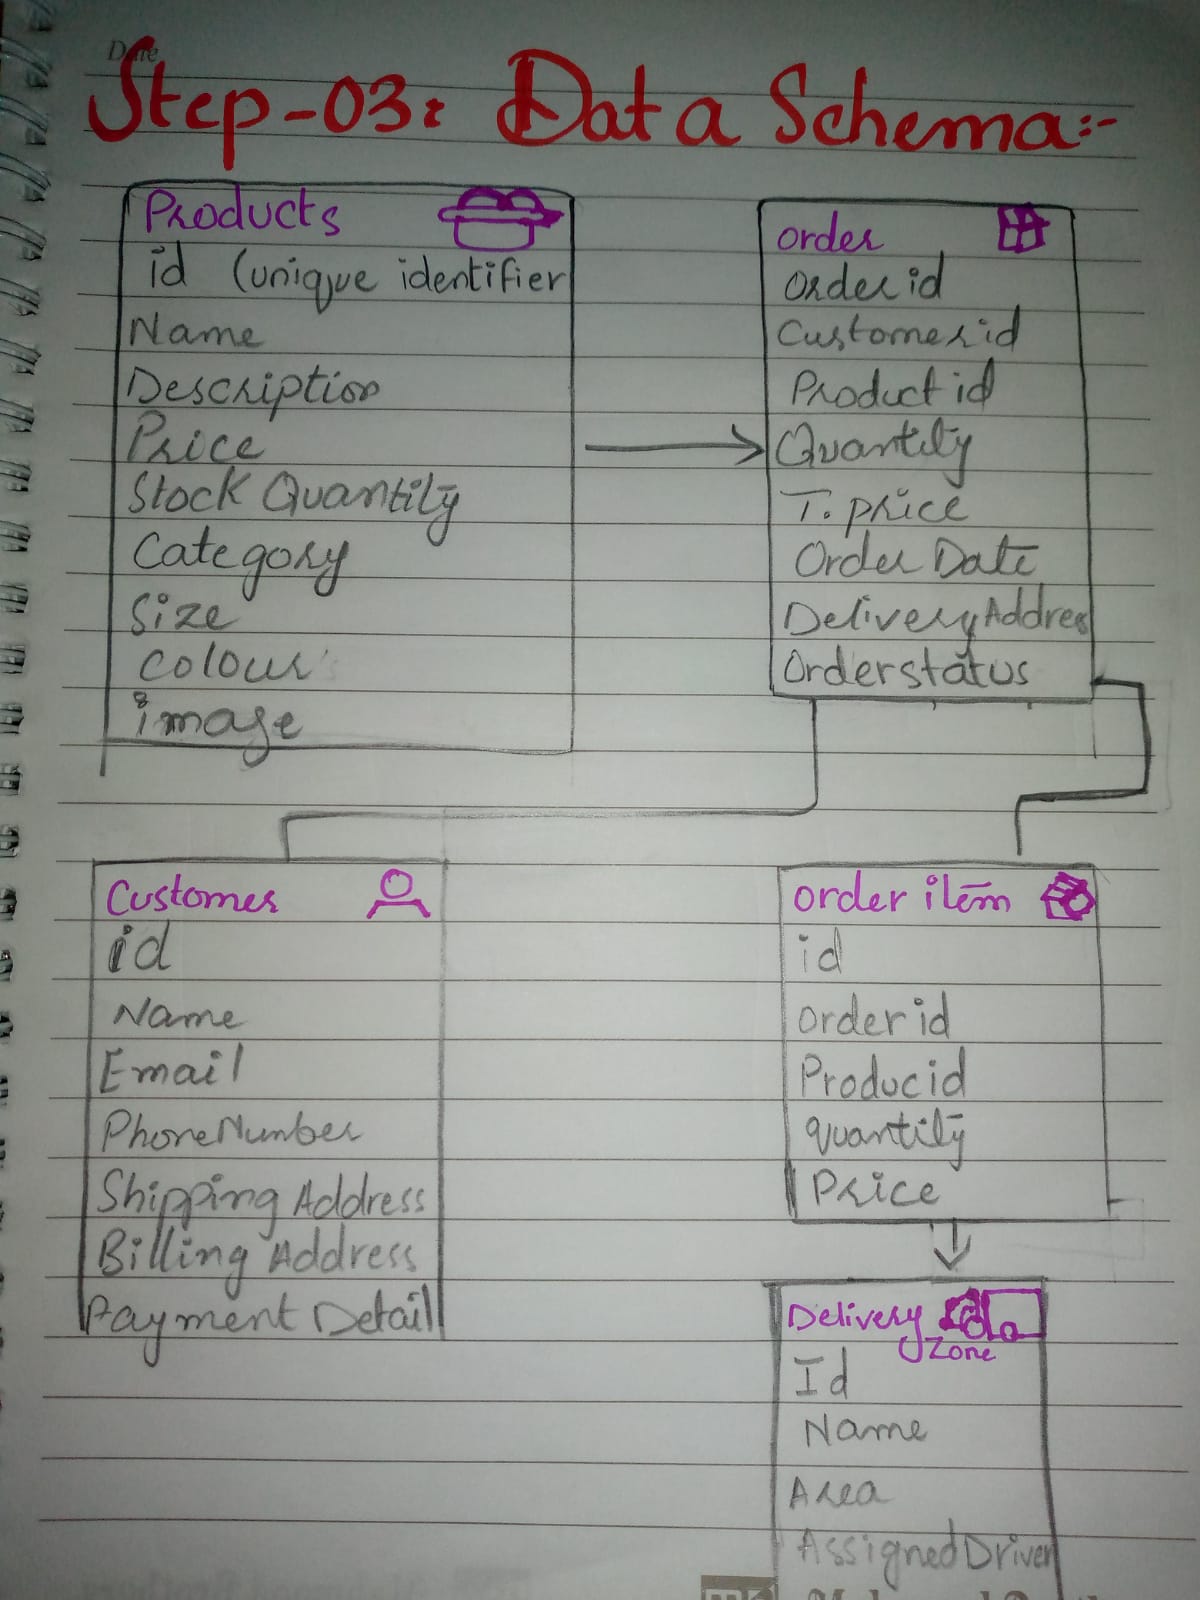 Date
Step-03: Data Schema:-
Products
id (unique identifier
Name
Description
Price
Stock Quantity
Category
Size
Colour
image
order
Order id
Customer id
Product id
Quantity
T. price
Order Date
Delivery Addres
Order status
Customer
id
Name
Email
Phone Number
Shipping Address
Billing Address
Payment Detail
order item
id
order id
Produc id
quantity
Price
Delivery
Zone
Id
Name
Area
Assigned Driver